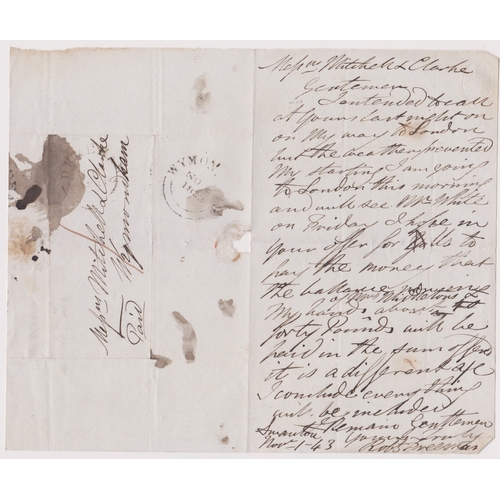 Messrs Mitchell & Clarke
Wymondham
Paid
WYMON
NO
Messrs Mitchell & Clarke
Gentlemen
I intended to call
at yours last night on
on My way to London
but the weather prevented
My starting I am going
to London this morning
and will see Mr White
on Friday I hope in
Your offer for to
pay the money that
the ballance
of
My hands above
forty Pounds will be
paid in the sum offerd
it is a different
I conclude everything
will be included
I Remain Gentlemen
Swanton Yours truly
Novr 1 - 43 Robt Freeman